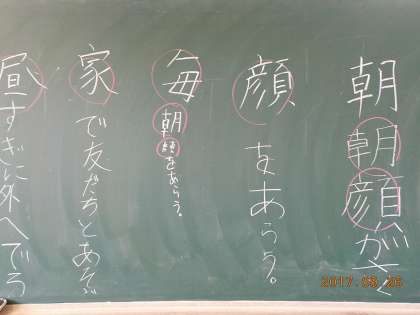 朝朝顔がさく
顔をあらう。
毎朝顔をあらう。
家で友だちとあそぶ
昼すぎに外へでう